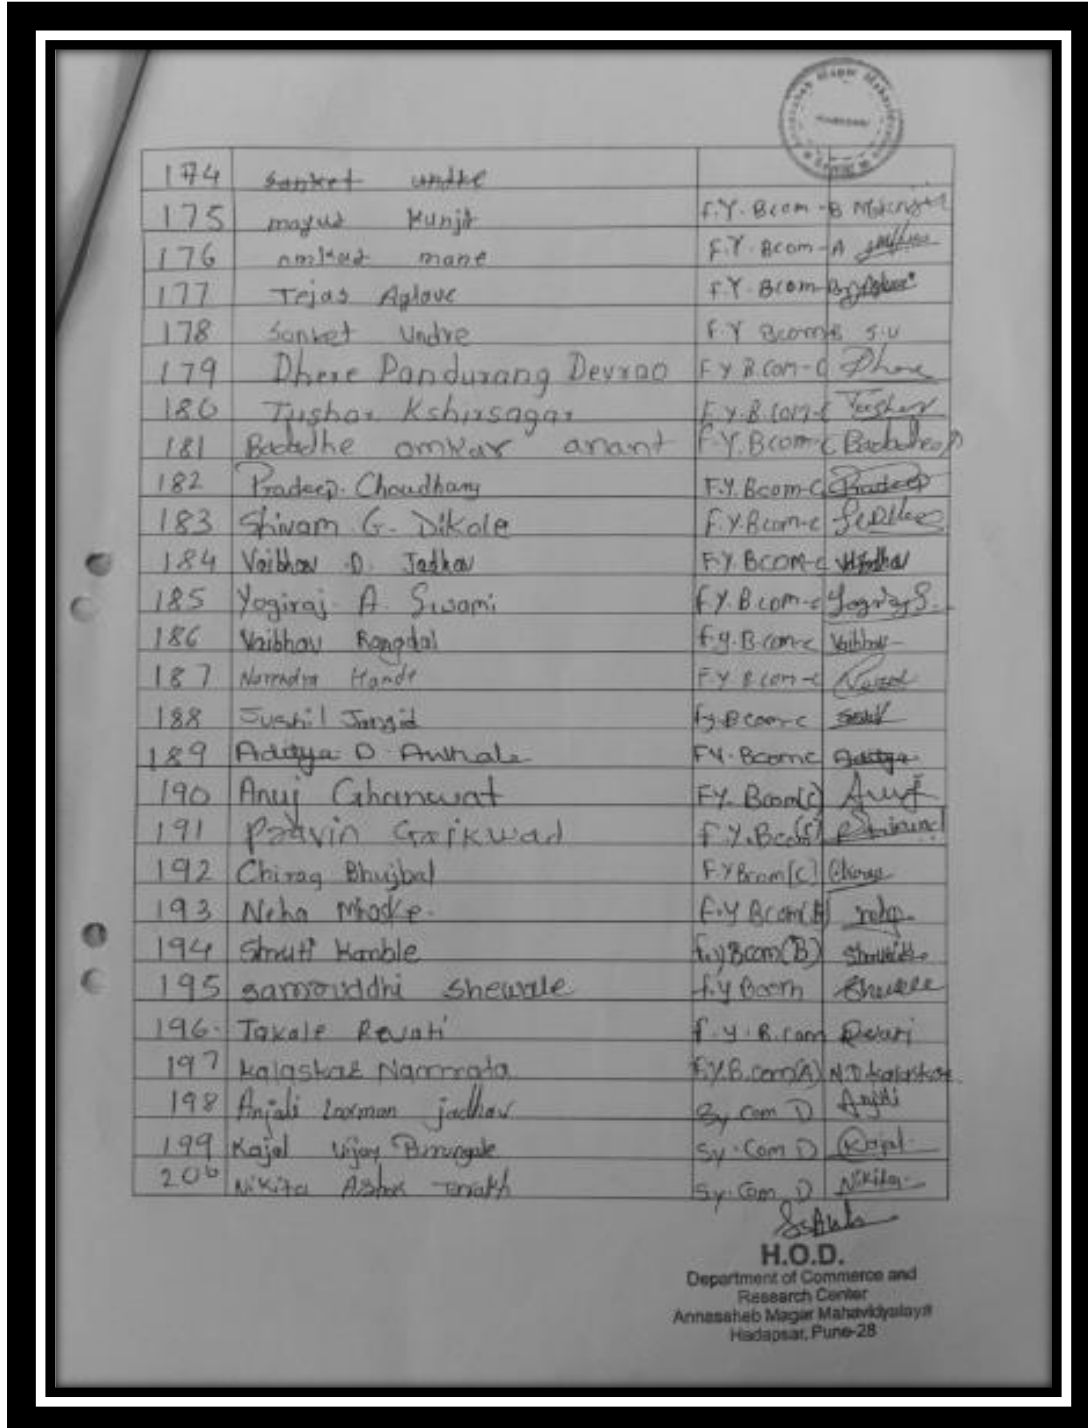 174 sanket undre
175 mayur Kunjir F.Y. Bcom - B
176 omkar mane F.Y. Bcom - A
177 Tejas Aglave F.Y. Bcom - B
178 Sanket Undre F.Y Bcom B S.U
179 Dhere Pandurang Devrao F Y B.Com - C Dhere
180 Tushar Kshirsagar F.Y.B.Com - C Tushar
181 Badadhe omkar anant F.Y.Bcom - C
182 Pradeep. Choudhary F.Y. Bcom - C Pradeep
183 Shivam G. Dikole F.Y.Bcom - c
184 Vaibhav D. Jadhav F.Y. BCOM - C
185 Yogiraj A. Swami F.Y. B.com - c Yogiraj S.
186 Vaibhav Rangdal f.y. B.com - c Vaibhav
187 Narendra Hande F.Y B.com - c
188 Sushil Jangid fy. B com - c
189 Aditya D Awhale F.Y. Bcom C Aditya
190 Anuj Ghanwat F.Y. Bcom(c) Anuj
191 Pravin Gaikwad F.Y.Bcom(c)
192 Chirag Bhujbal F.Y Bcom(C) Chirag
193 Neha Mhaske. F.y Bcom(B) neha
194 Shruti Kamble f.y Bcom(B)
195 samruddhi shewale f.y Bcom
196. Takale Revati f. y. B.com Revati
197 Kalaskar Namrata F.Y.B.com(A) N.D. Kalaskar
198 Anjali Laxman jadhav Sy com D Anjali
199 Kajal Vijay Burungale Sy. Com D Kajal
200 Nikita Ashok Sy. Com D Nikita
H.O.D.
Department of Commerce and
Research Center
Annasaheb Magar Mahavidyalaya
Hadapsar, Pune-28